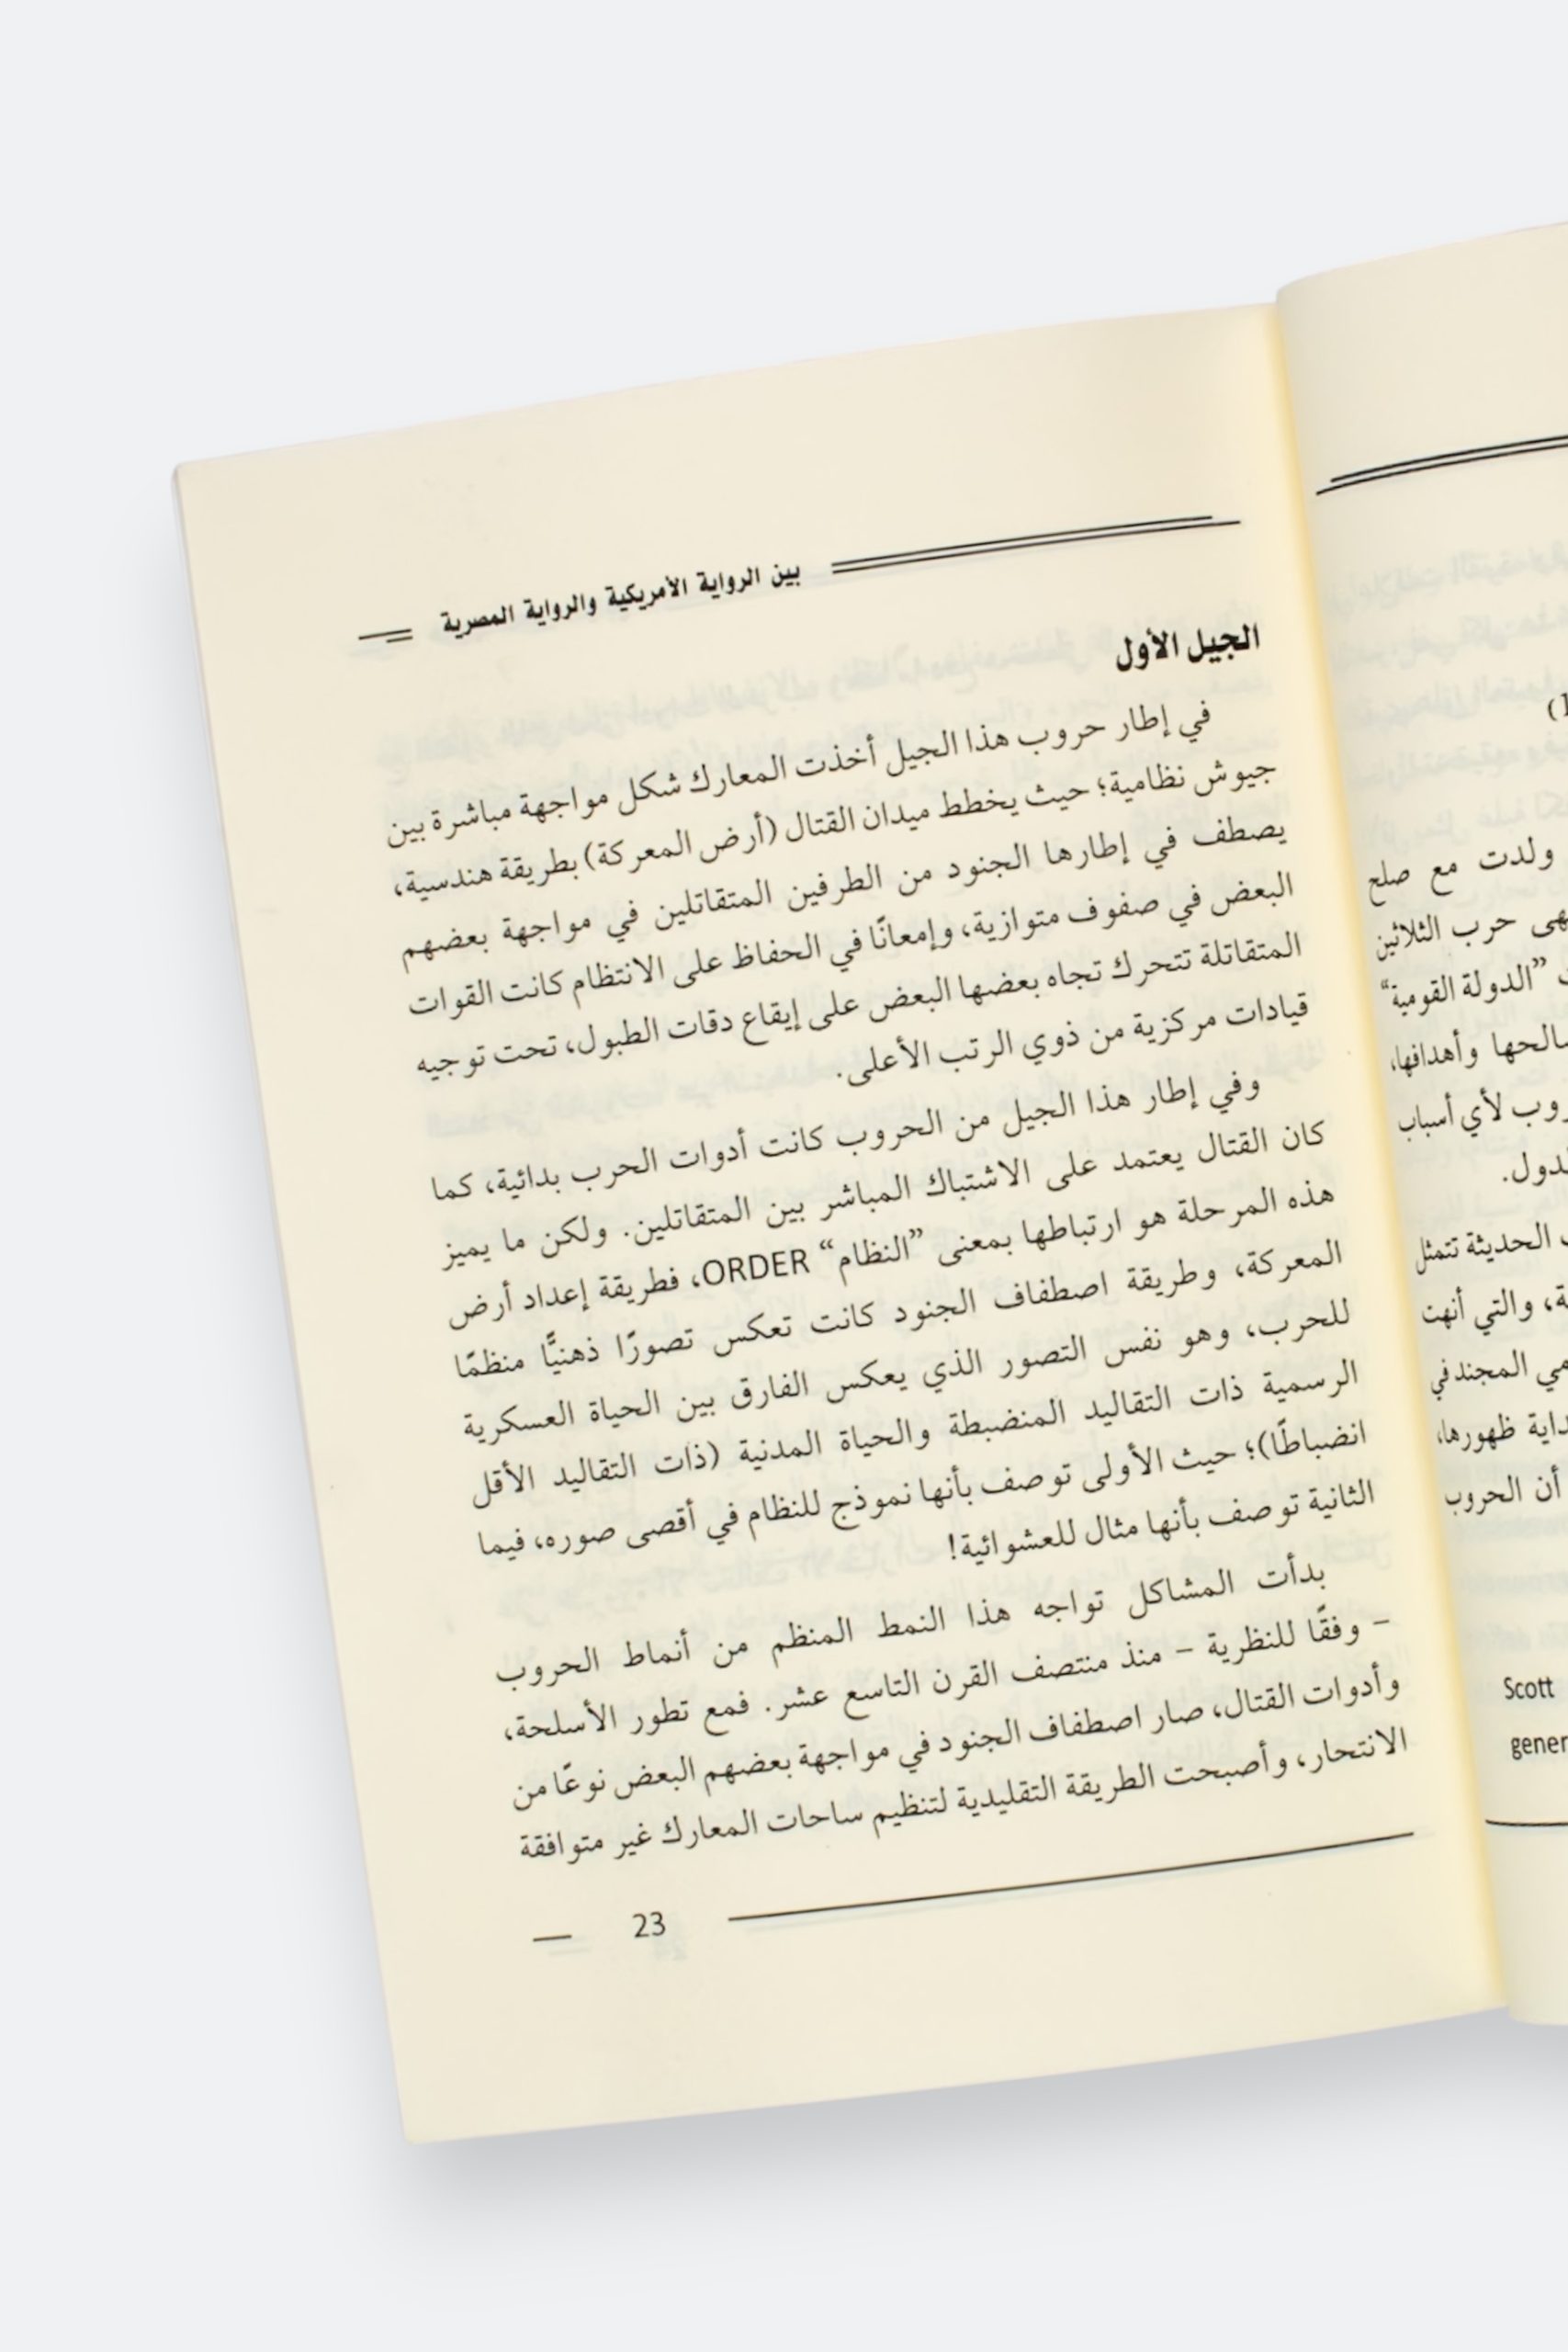 بين الرواية الأمريكية والرواية المصرية
الجيل الأول
في إطار حروب هذا الجيل أخذت المعارك شكل مواجهة مباشرة بين
جيوش نظامية؛ حيث يخطط ميدان القتال (أرض المعركة) بطريقة هندسية،
يصطف في إطارها الجنود من الطرفين المتقاتلين في مواجهة بعضهم
البعض في صفوف متوازية، وإمعانًا في الحفاظ على الانتظام كانت القوات
المتقاتلة تتحرك تجاه بعضها البعض على إيقاع دقات الطبول، تحت توجيه
قيادات مركزية من ذوي الرتب الأعلى.
وفي إطار هذا الجيل من الحروب كانت أدوات الحرب بدائية، كما
كان القتال يعتمد على الاشتباك المباشر بين المتقاتلين. ولكن ما يميز
هذه المرحلة هو ارتباطها بمعنى ”النظام“ ORDER، فطريقة إعداد أرض
المعركة، وطريقة اصطفاف الجنود كانت تعكس تصورًا ذهنيًّا منظمًا
للحرب، وهو نفس التصور الذي يعكس الفارق بين الحياة العسكرية
الرسمية ذات التقاليد المنضبطة والحياة المدنية (ذات التقاليد الأقل
انضباطًا)؛ حيث الأولى توصف بأنها نموذج للنظام في أقصى صوره، فيما
الثانية توصف بأنها مثال للعشوائية!
بدأت المشاكل تواجه هذا النمط المنظم من أنماط الحروب
– وفقًا للنظرية – منذ منتصف القرن التاسع عشر. فمع تطور الأسلحة،
وأدوات القتال، صار اصطفاف الجنود في مواجهة بعضهم البعض نوعًا من
الانتحار، وأصبحت الطريقة التقليدية لتنظيم ساحات المعارك غير متوافقة
23
ولدت مع صلح
حرب الثلاثين
”الدولة القومية“
وأهدافها،
لأي أسباب
الحديثة تتمثل
والتي أنهت
المجند في
ظهورها،
أن الحروب
Scott